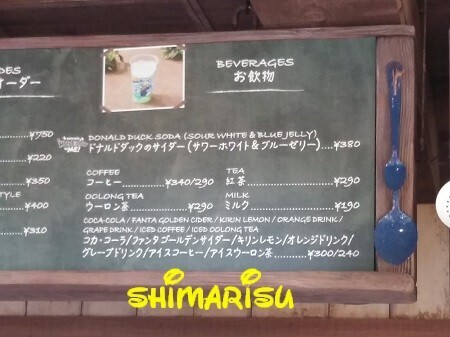 DES
ーオーダー
BEVERAGES
お飲物
¥750
¥220
¥350
TYLE
¥400
¥310
DONALD DUCK SODA (SOUR WHITE & BLUE JELLY)
ドナルドダックのサイダー(サワーホワイト&ブルーゼリー)....¥380
COFFEE
コーヒー............¥340/290
TEA
紅茶................¥290
OOLONG TEA
ウーロン茶..............¥290
MILK
ミルク..............¥190
COCA-COLA / FANTA GOLDEN CIDER / KIRIN LEMON / ORANGE DRINK /
GRAPE DRINK / ICED COFFEE / ICED OOLONG TEA
コカ・コーラ/ファンタゴールデンサイダー/キリンレモン/オレンジドリンク/
グレープドリンク/アイスコーヒー/アイスウーロン茶.........¥300/240
SHIMARISU